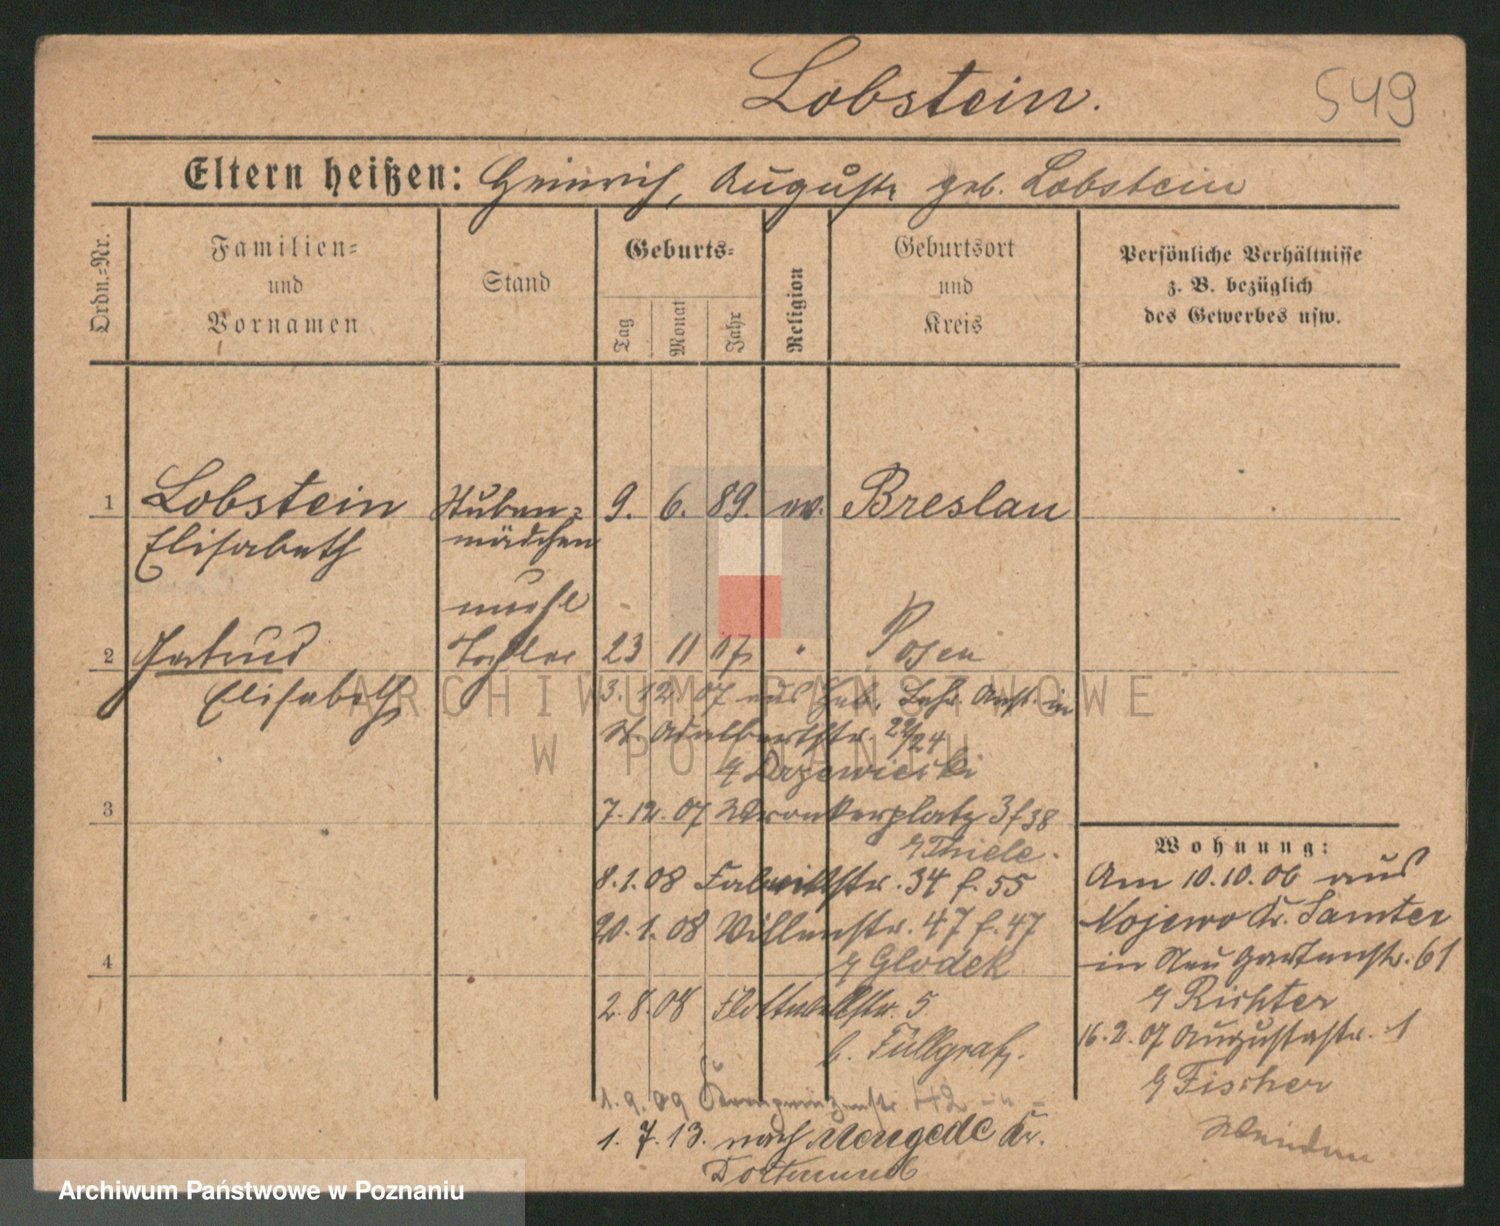 Lobstein.
549
Eltern heißen: Heinrich, Auguste geb. Lobstein
Ordn.-Nr.
Familien-
und
Vornamen
Stand
Geburts-
Tag
Monat
Jahr
Religion
Geburtsort
und
Kreis
Persönliche Verhältnisse
z. B. bezüglich
des Gewerbes usw.
1 Lobstein Stuben- 9. 6. 89. ev. Breslau
Elisabeth mädchen
unehl
2 Gertrud Tochter 23 11 07 " Posen
Elisabeth
3. 12. 07 aus Heb. Lehr. Anst. in
St. Adalbertstr. 22/24
3
7. 12. 07 Wronkerplatz 3 f 38
b/ Thiele.
8. 1. 08 34 f. 55
20. 1. 08 47 f. 47
4
b/ Glodek
2. 8. 08 Flottwellstr. 5
b. Füllgraf.
1. 9. 09 Kronprinzenstr 42
1. 7. 13. nach Mengede Kr.
Dortmund
Wohnung:
Am 10.10.06 aus
Nojewo Kr. Samter
in Neu Gartenstr. 61
b/ Richter
16. 2. 07 Augustastr. 1
b/ Fischer
ARCHIWUM PAŃSTWOWE
W POZNANIU
Archiwum Państwowe w Poznaniu